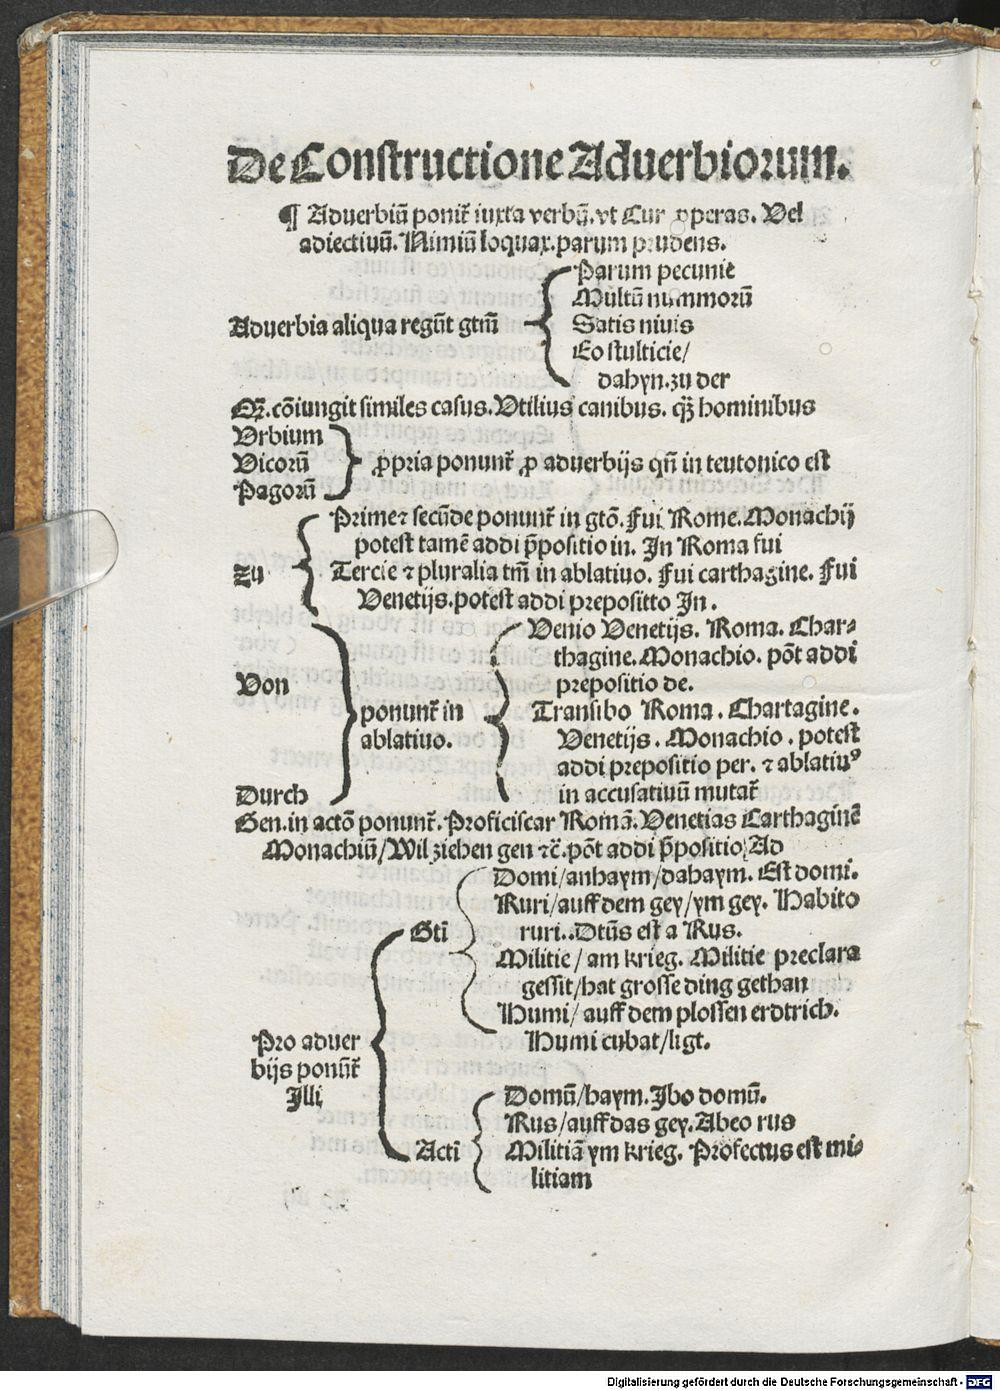 De Constructione Aduerbiorum.
¶ Aduerbiū ponit̃ iuxta verbū. vt Cur properas. Vel
adiectiuū. Nimiū loquax. parum prudens.
Aduerbia aliqua regūt gtm̄
Parum pecunie
Multū nummorū
Satis niuis
Eo stulticie/
dahyn. zu der
cōiungit similes casus. Vtilius canibus. qꝫ hominibus
Vrbium
Vicorū
Pagorū
ꝓpria ponunt̃ ꝓ aduerbijs qn̄ in teutonico est
Zu
Prime ⁊ secūde ponunt̃ in gtō. Fui Rome. Monachij
potest tamē addi p̄positio in. In Roma fui
Tercie ⁊ pluralia tm̄ in ablatiuo. Fui carthagine. Fui
Venetijs. potest addi prepositto In.
Von
Durch
ponunt̃ in
ablatiuo.
Venio Venetijs. Roma. Char⸗
thagine. Monachio. pōt addi
prepositio de.
Transibo Roma. Chartagine.
Venetijs. Monachio. potest
addi prepositio per. ⁊ ablatiuꝰ
in accusatiuū mutat̃
Gen. in actō ponunt̃. Proficiscar Romā. Venetias Carthaginē
Monachiū/Wil ziehen gen ⁊c̄. pōt addi p̄positio, Ad
Pro aduer
bijs ponūt̃
Illi
Gti
Domi/anhaym/dahaym. Est domi.
Ruri/auff dem gey/ym gey. Habito
ruri.. Dtūs est a Rus.
Militie/am krieg. Militie preclara
gessit/hat grosse ding gethan
Humi/auff dem plossen erdtrich.
Humi cubat/ligt.
Acti
Domū/haym. Ibo domū.
Rus/auff das gey. Abeo rus
Militiā ym krieg. Profectus est mi⸗
litiam
Digitalisierung gefördert durch die Deutsche Forschungsgemeinschaft - DFG